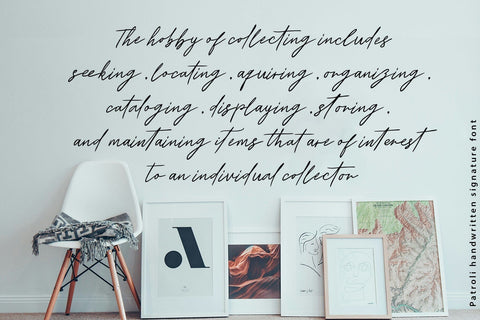 The hobby of collecting includes
seeking . locating . aquiring . organizing .
cataloging . displaying . storing .
and maintaining items that are of interest
to an individual collector
a
Patroli handwritten signature font